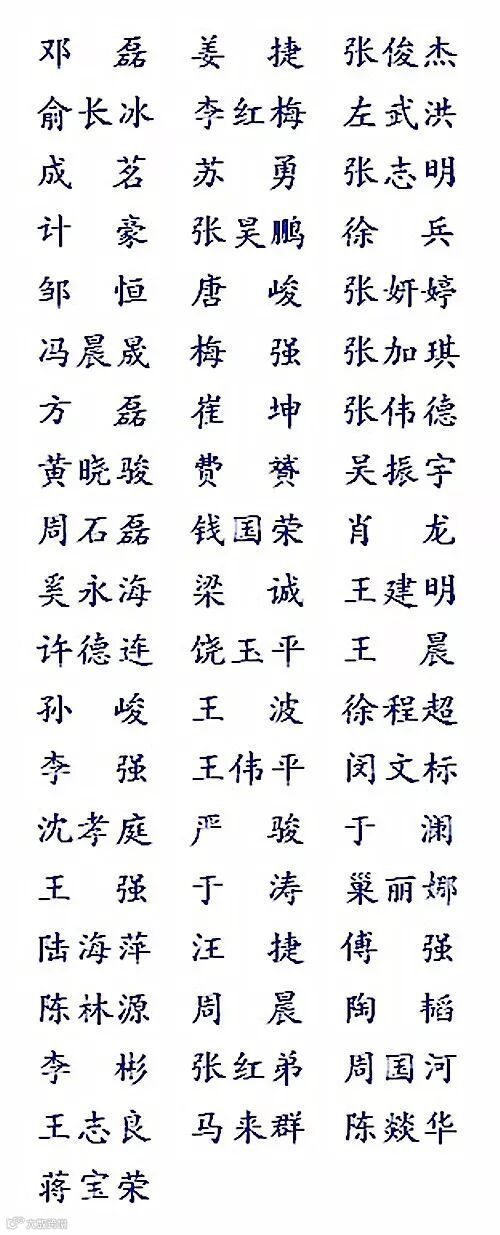 邓磊 姜捷 张俊杰
俞长冰 李红梅 左武洪
成茗 苏勇 张志明
计豪 张昊鹏 徐兵
邹恒 唐峻 张妍婷
冯晨晟 梅强 张加琪
方磊 崔坤 张伟德
黄晓骏 费赟 吴振宇
周石磊 钱国荣 肖龙
奚永海 梁诚 王建明
许德连 饶玉平 王晨
孙峻 王波 徐程超
李强 王伟平 闵文标
沈孝庭 严骏 于澜
王强 于涛 巢丽娜
陆海萍 汪捷 傅强
陈林源 周晨 陶韬
李彬 张红弟 周国河
王志良 马来群 陈燚华
蒋宝荣